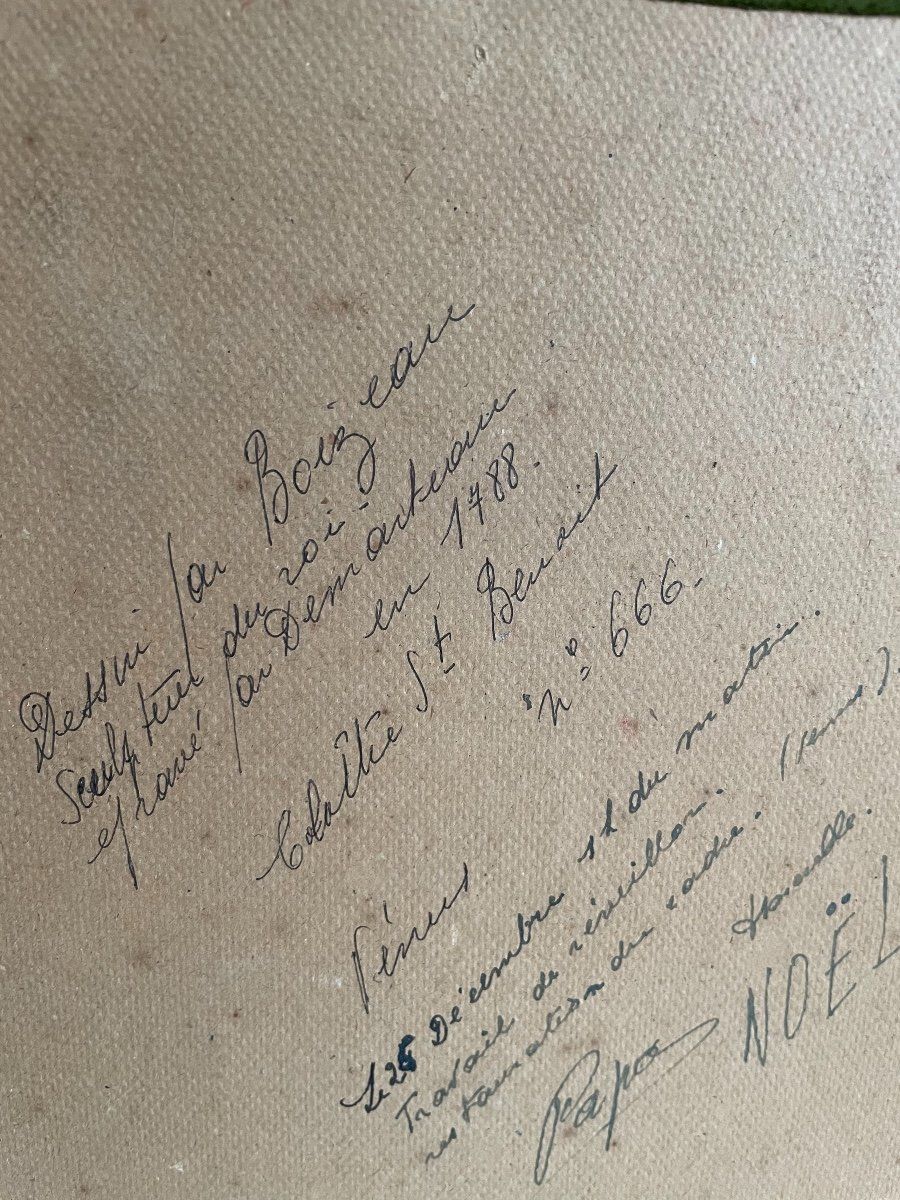 Dessin par Boizeau
Sculpteur du roi -
gravé par Demarteau
en 1788.
Cloître St Benoit
n° 666.
Vénus
Le 25 Décembre 1h du matin.
Travail de réveillon.
restauration du cadre. (Venus).
Papa NOËL